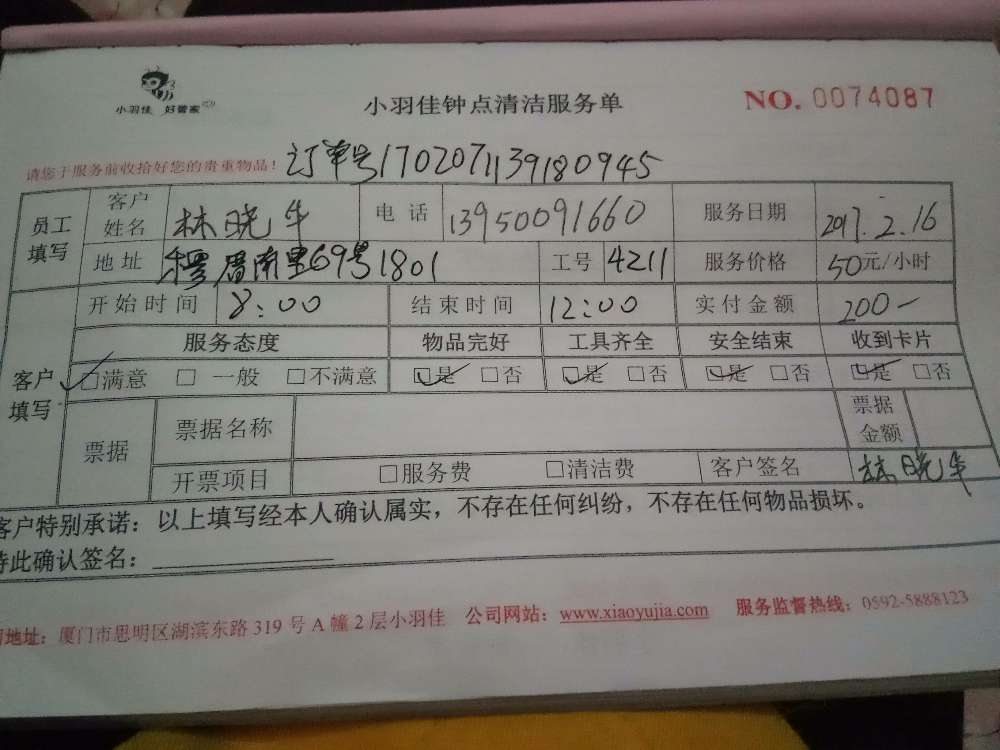 小羽佳 好管家
小羽佳钟点清洁服务单
NO. 0074087
请您于服务前收拾好您的贵重物品! 订单号1702071139180945
员工填写 客户姓名 林晓华 电话 13950091660 服务日期 2017.2.16
地址 南里69号1801 工号 4211 服务价格 50元/小时
客户填写 开始时间 8:00 结束时间 12:00 实付金额 200-
服务态度 物品完好 工具齐全 安全结束 收到卡片
☑满意 □一般 □不满意 ☑是 □否 ☑是 □否 ☑是 □否 ☑是 □否
票据 票据名称 票据金额
开票项目 □服务费 □清洁费 客户签名 林晓华
客户特别承诺:以上填写经本人确认属实,不存在任何纠纷,不存在任何物品损坏。
特此确认签名:
地址:厦门市思明区湖滨东路319号A幢2层小羽佳 公司网站:www.xiaoyujia.com 服务监督热线:0592-5888123